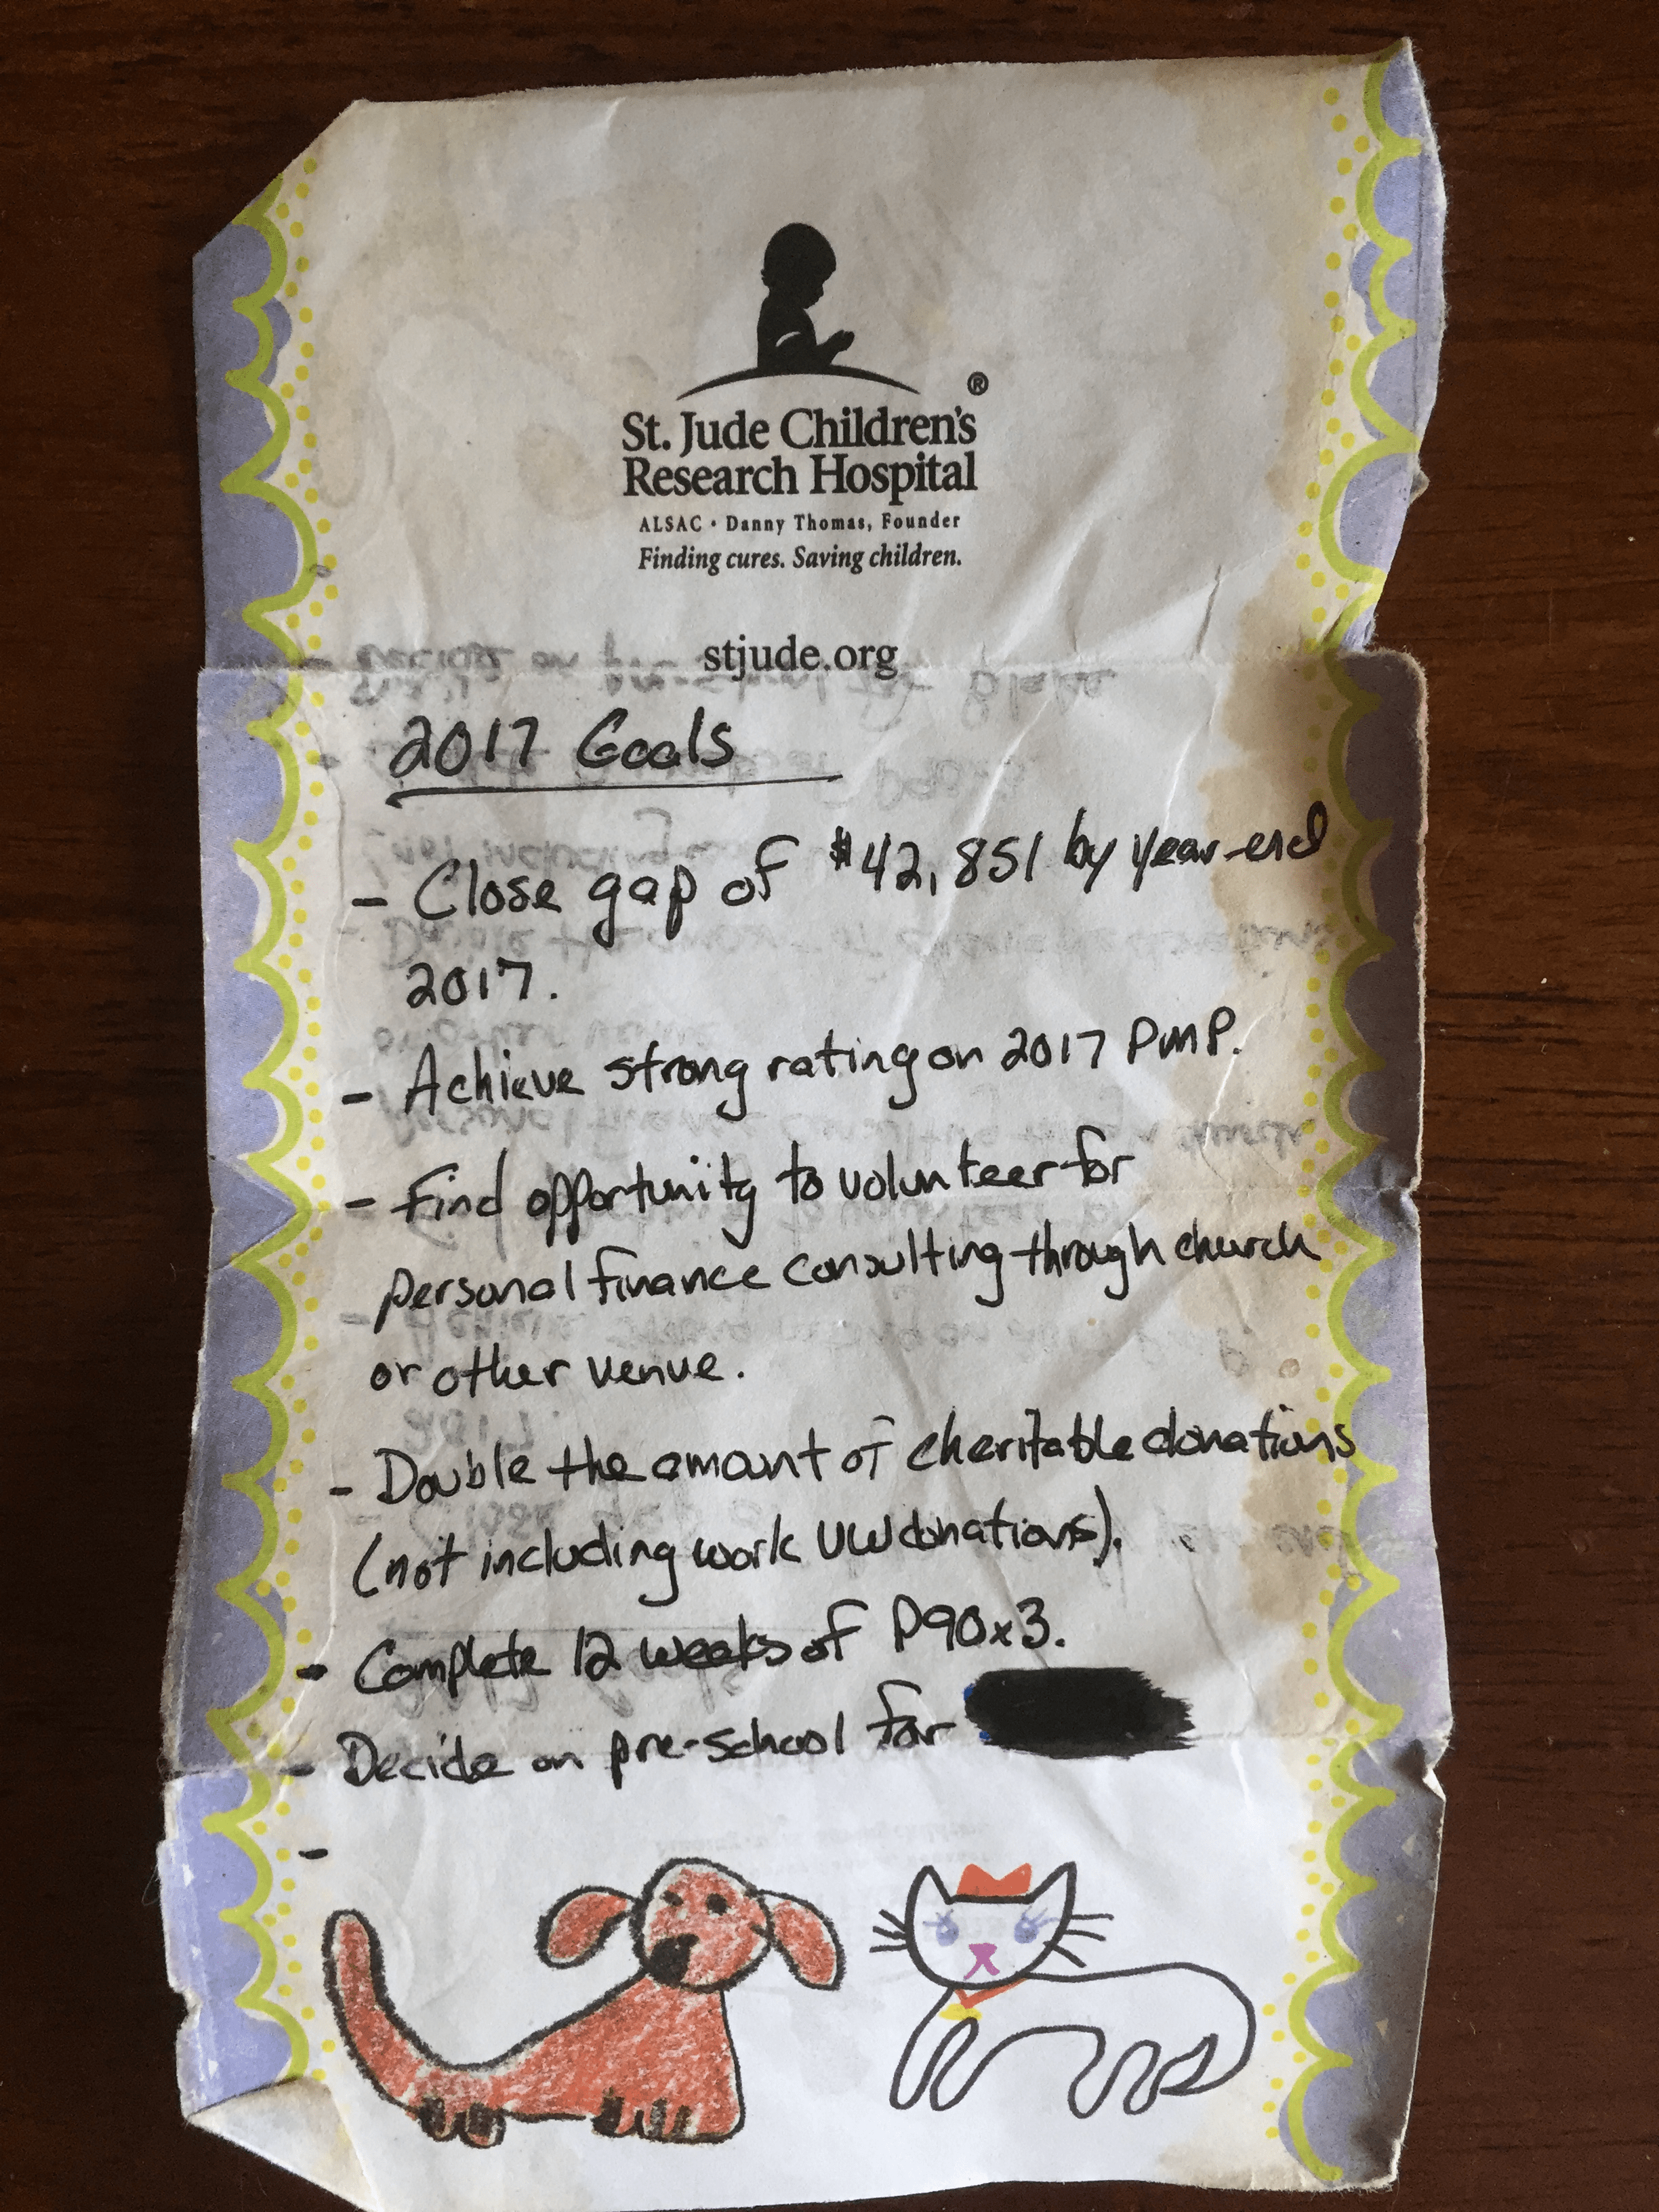 ®
St. Jude Children's
Research Hospital
ALSAC • Danny Thomas, Founder
Finding cures. Saving children.
stjude.org
2017 Goals
- Close gap of $42,851 by year-end
2017.
- Achieve strong rating on 2017 PMP.
- Find opportunity to volunteer for
personal finance consulting through church
or other venue.
- Double the amount of charitable donations
(not including work UW donations).
- Complete 12 weeks of P90x3.
- Decide on pre-school for
-